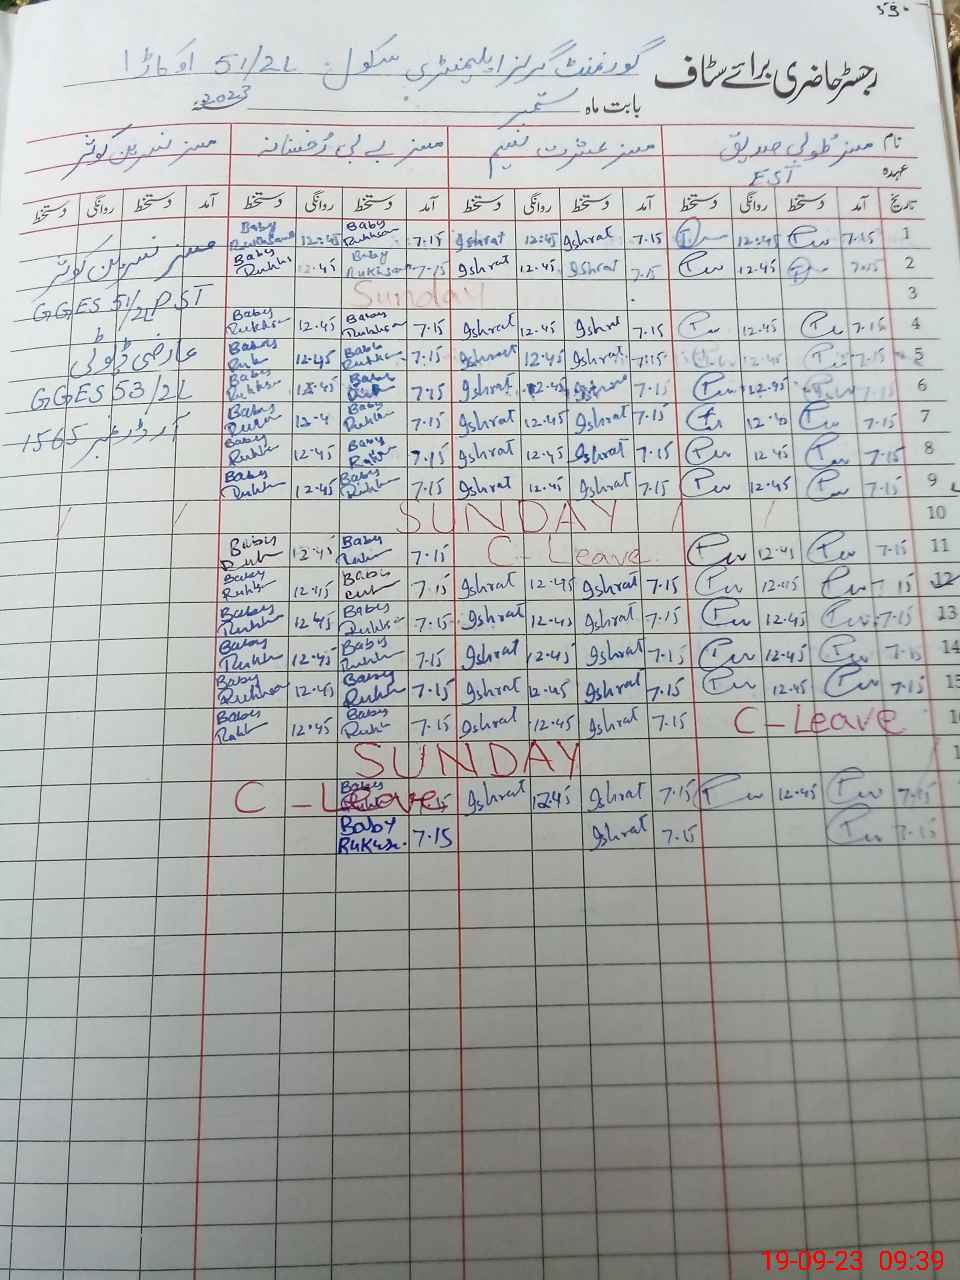 رجسٹر حاضری برائے سٹاف گورنمنٹ گرلز ایلیمنٹری سکول 51/2L اوکاڑا
بابت ماہ ستمبر 2023ء
نام مسز طوبیٰ صدیق مسز عشرت نسیم مسز بے بی رخسانہ مسز نسرین کوثر
عہدہ EST
تاریخ آمد دستخط روانگی دستخط آمد دستخط روانگی دستخط آمد دستخط روانگی دستخط آمد دستخط روانگی دستخط
1 7.15 12:45 7.15 Ishrat 12:45 Ishrat 7.15 Baby Rukhsan 12:45 Baby مسز نسرین کوثر
2 7:15 12.45 7.15 Ishrat 12.45 Ishrat 7.15 Baby Rukhsan 12.45 Baby
3 Sunday GGES 51/2L PST
4 7.15 12.45 7.15 Ishrat 12.45 Ishrat 7.15 Baby Rukhsa 12.45 Baby Rukhsa
5 7.15 12.45 7:15 Ishrat 12.45 Ishrat 7.15 Baby 12.45 Baby عارضی ڈیوٹی
6 7.15 12.45 7.15 12.45 Ishrat 7.15 Baby 12.45 Baby GGES 53/2L
7 7.15 7.15 Ishrat 12.45 Ishrat 7.15 Baby Baby آرڈر نمبر 1565
8 7.15 12.45 7.15 Ishrat 12.45 Ishrat 7.15 Baby 12.45 Baby
9 7.15 12.45 7.15 Ishrat 12.45 Ishrat 7.15 Baby 12.45 Baby
10 SUNDAY
11 7.15 12.45 C-Leave 7.15 Baby 12.45 Baby
12 7.15 12.45 7.15 Ishrat 12.45 Ishrat 7.15 Baby 12.45 Baby
13 7.15 12.45 7.15 Ishrat 12.45 Ishrat 7.15 Baby 12.45 Baby
14 7.15 12.45 7.15 Ishrat 12.45 Ishrat 7.15 Baby 12.45 Baby
15 7.15 12.45 7.15 Ishrat 12.45 Ishrat 7.15 Baby 12.45 Baby
C-Leave 7.15 Ishrat 12.45 Ishrat 7.15 Baby 12.45 Baby
SUNDAY
7.15 12.45 7.15 Ishrat 12.45 Ishrat C-Leave
7.15 7.15 Ishrat 7.15 Baby
19-09-23 09:39